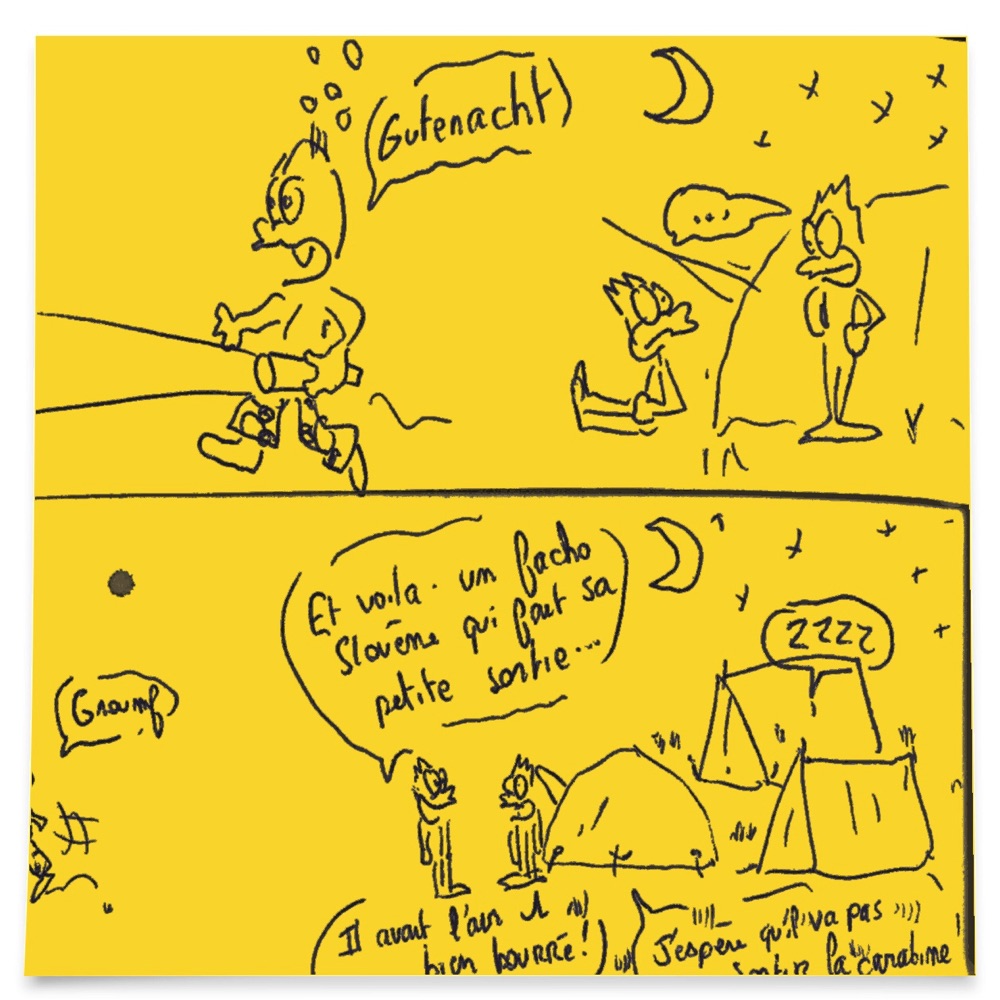 Gutenacht
...
Et voila. un facho
Slovène qui fait sa
petite sortie...
ZZZZ
Groumf
Il avait l'air
bien bourré!
J'espère qu'il va pas
sortir la carabine